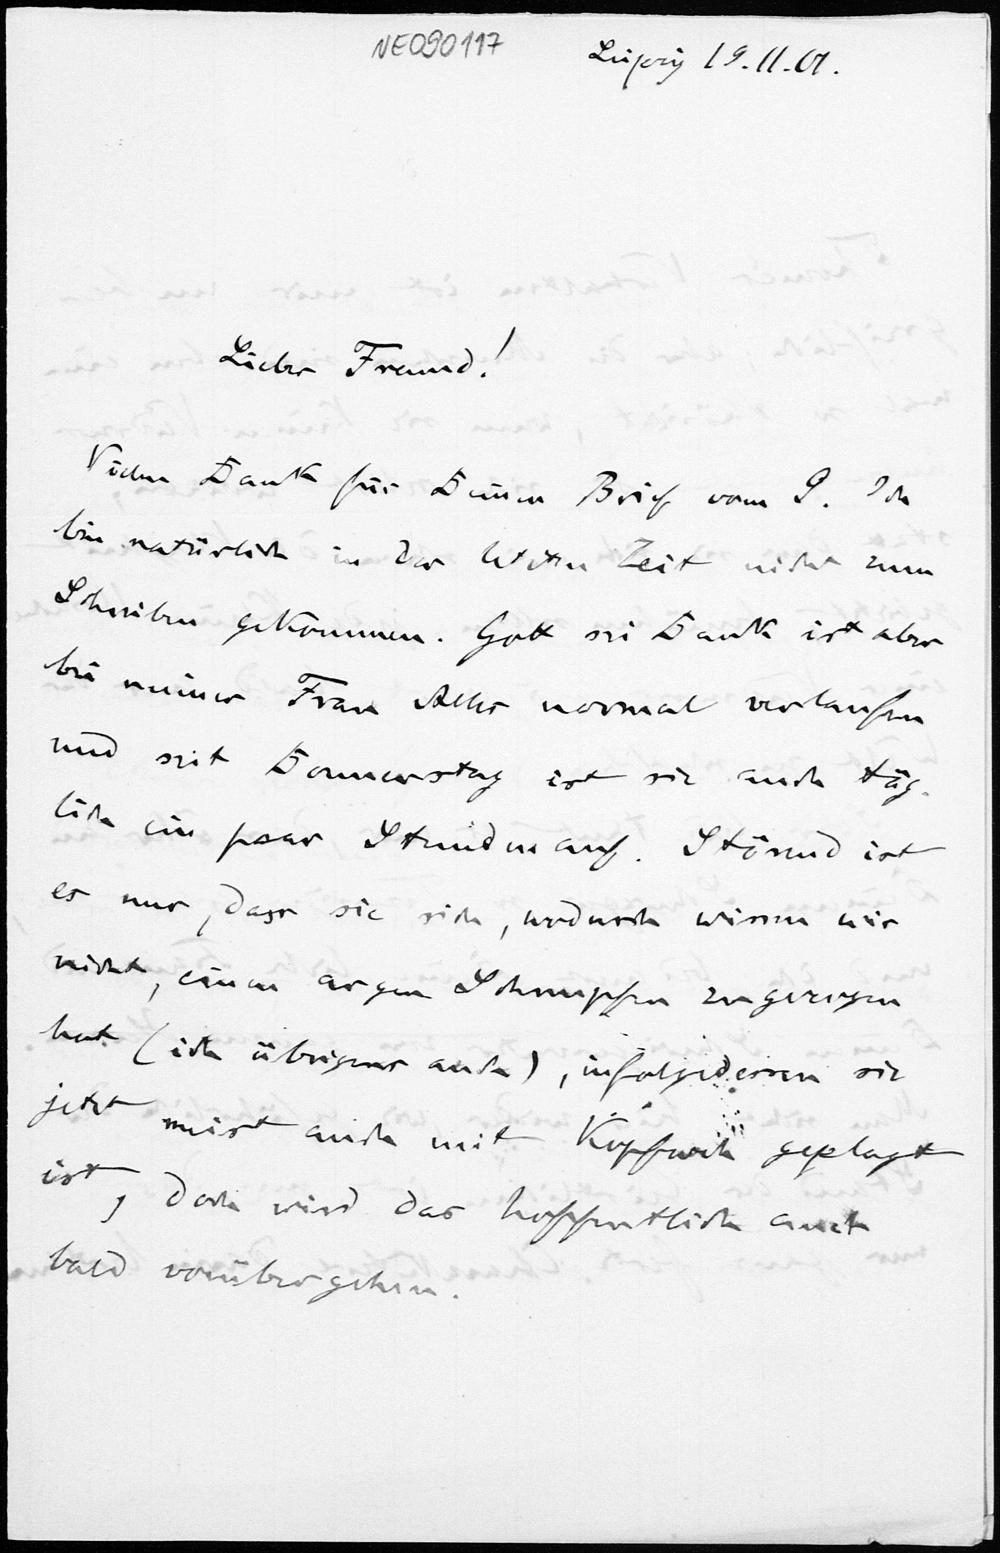 NE090117
Leipzig 19.11.01.
Lieber Freund!
Vielen Dank für Deinen Brief vom 9. Ich
bin natürlich in der letzten Zeit nicht zum
Schreiben gekommen. Gott sei Dank ist aber
bei meiner Frau Alles normal verlaufen
und seit Donnerstag ist sie auch täg-
lich ein paar Stunden auf. Störend ist
es nur, dass sie sich, wodurch wissen wir
nicht, einen argen Schnupfen zugezogen
hat (ich übrigens auch), infolgedessen sie
jetzt meist auch mit Kopfweh geplagt
ist, doch wird das hoffentlich auch
bald vorübergehen.